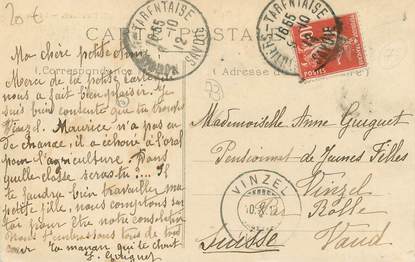 20€
CARTE POSTALE
Correspondance
Adresse
TARENTAISE
MOUTIERS
16 55
9-10
12
TARENTAISE
16 55
10
POSTES
Ma chère petite Anne
Merci de ta petite carte elle
nous a fait bien plaisir. Je
suis bien contente que tu
Vinzel. Maurice n'a pas eu
de chance, il a échoué à l'oral
pour l'agriculture. Dans
quelle classe seras tu?... Il
te faudra bien travailler ma
petite fille, nous comptons sur
toi pour être notre consolation
Nous t'embrassons tous de tout
ta maman qui te
J. Guiguet
Mademoiselle Anne Guiguet
Pensionnat de Jeunes Filles
Vinzel
Par Rolle
Suisse Vaud
VINZEL
10.X.12